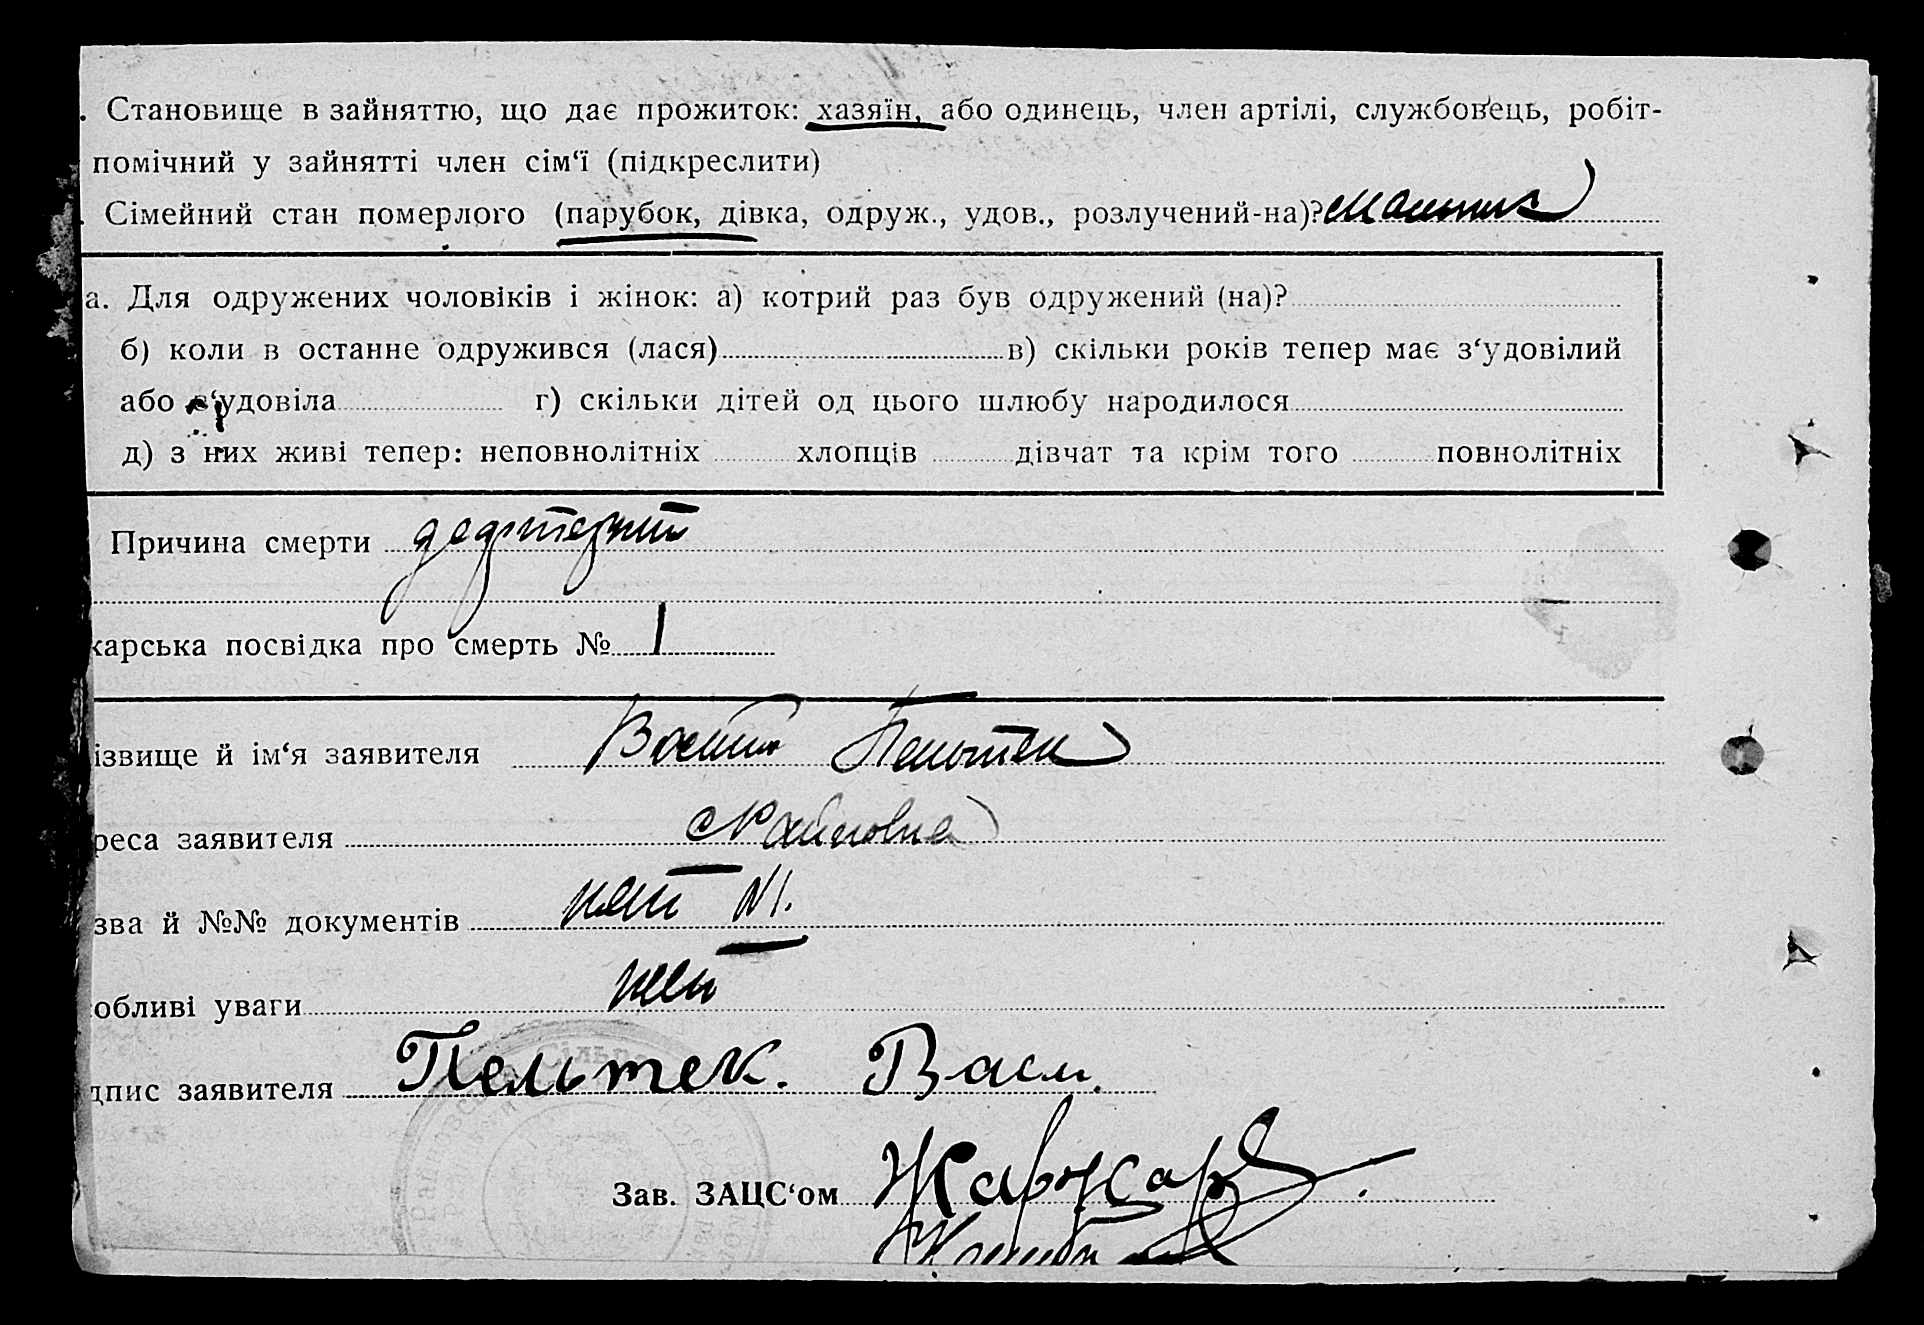 . Становище в зайняттю, що дає прожиток: хазяїн, або одинець, член артілі, службовець, робіт-
помічний у зайнятті член сім‘ї (підкреслити)
. Сімейний стан померлого (парубок, дівка, одруж., удов., розлучений-на)? мальчик
а. Для одружених чоловіків і жінок: а) котрий раз був одружений (на)?
б) коли в останне одружився (лася) в) скільки років тепер має з‘удовілий
або з‘удовіла г) скільки дітей од цього шлюбу народилося
д) з них живі тепер: неповнолітніх хлопців дівчат та крім того повнолітніх
Причина смерти
карська посвідка про смерть № 1
ізвище й ім‘я заявителя Василь Пельтек
реса заявителя с Райновка
зва й №№ документів нет №1.
обливі уваги нет
дпис заявителя Пельтек. Васил.
Зав. ЗАЦС‘ом